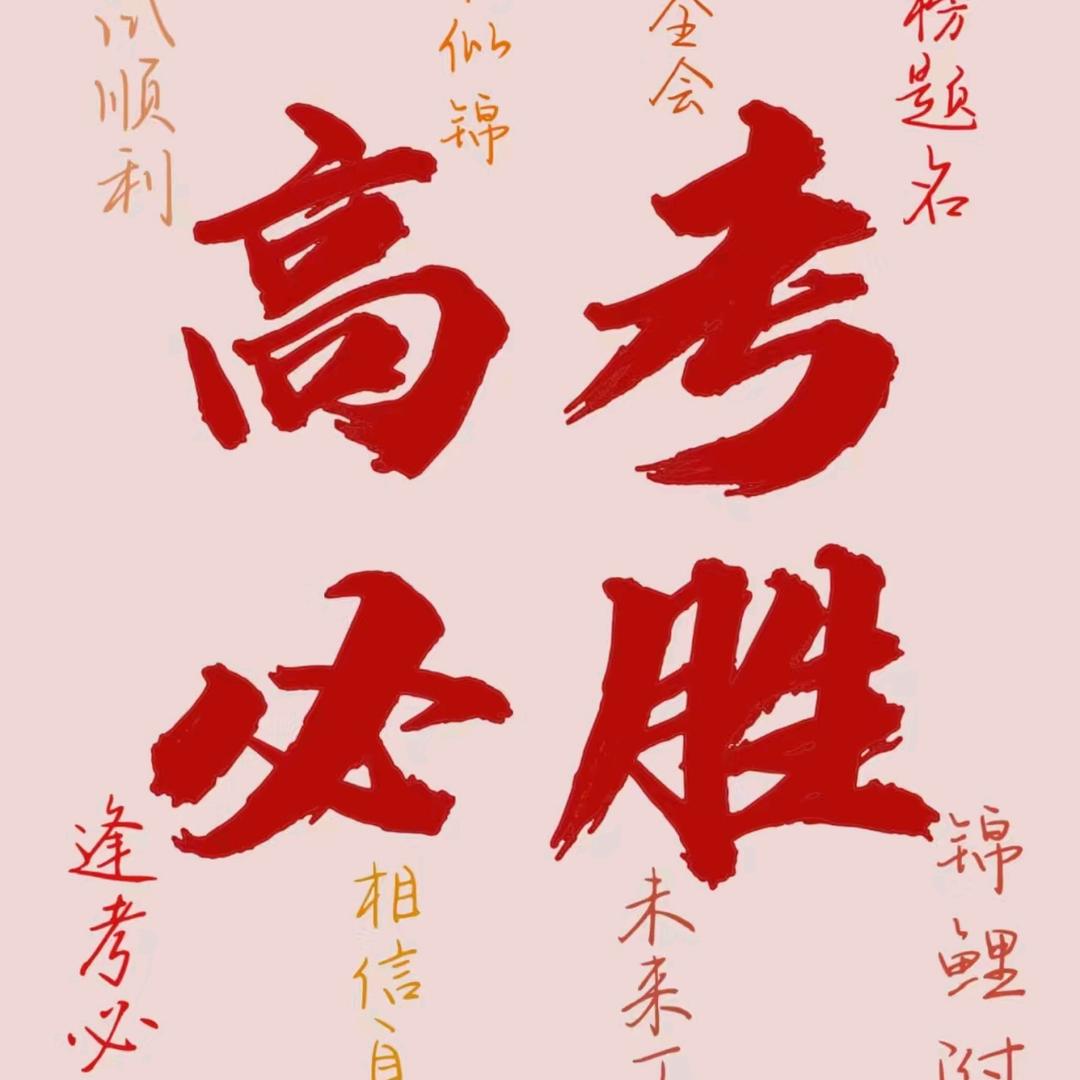 试顺利
似锦
全会
榜题名
高考
必胜
逢考必
相信自
未来
锦鲤附